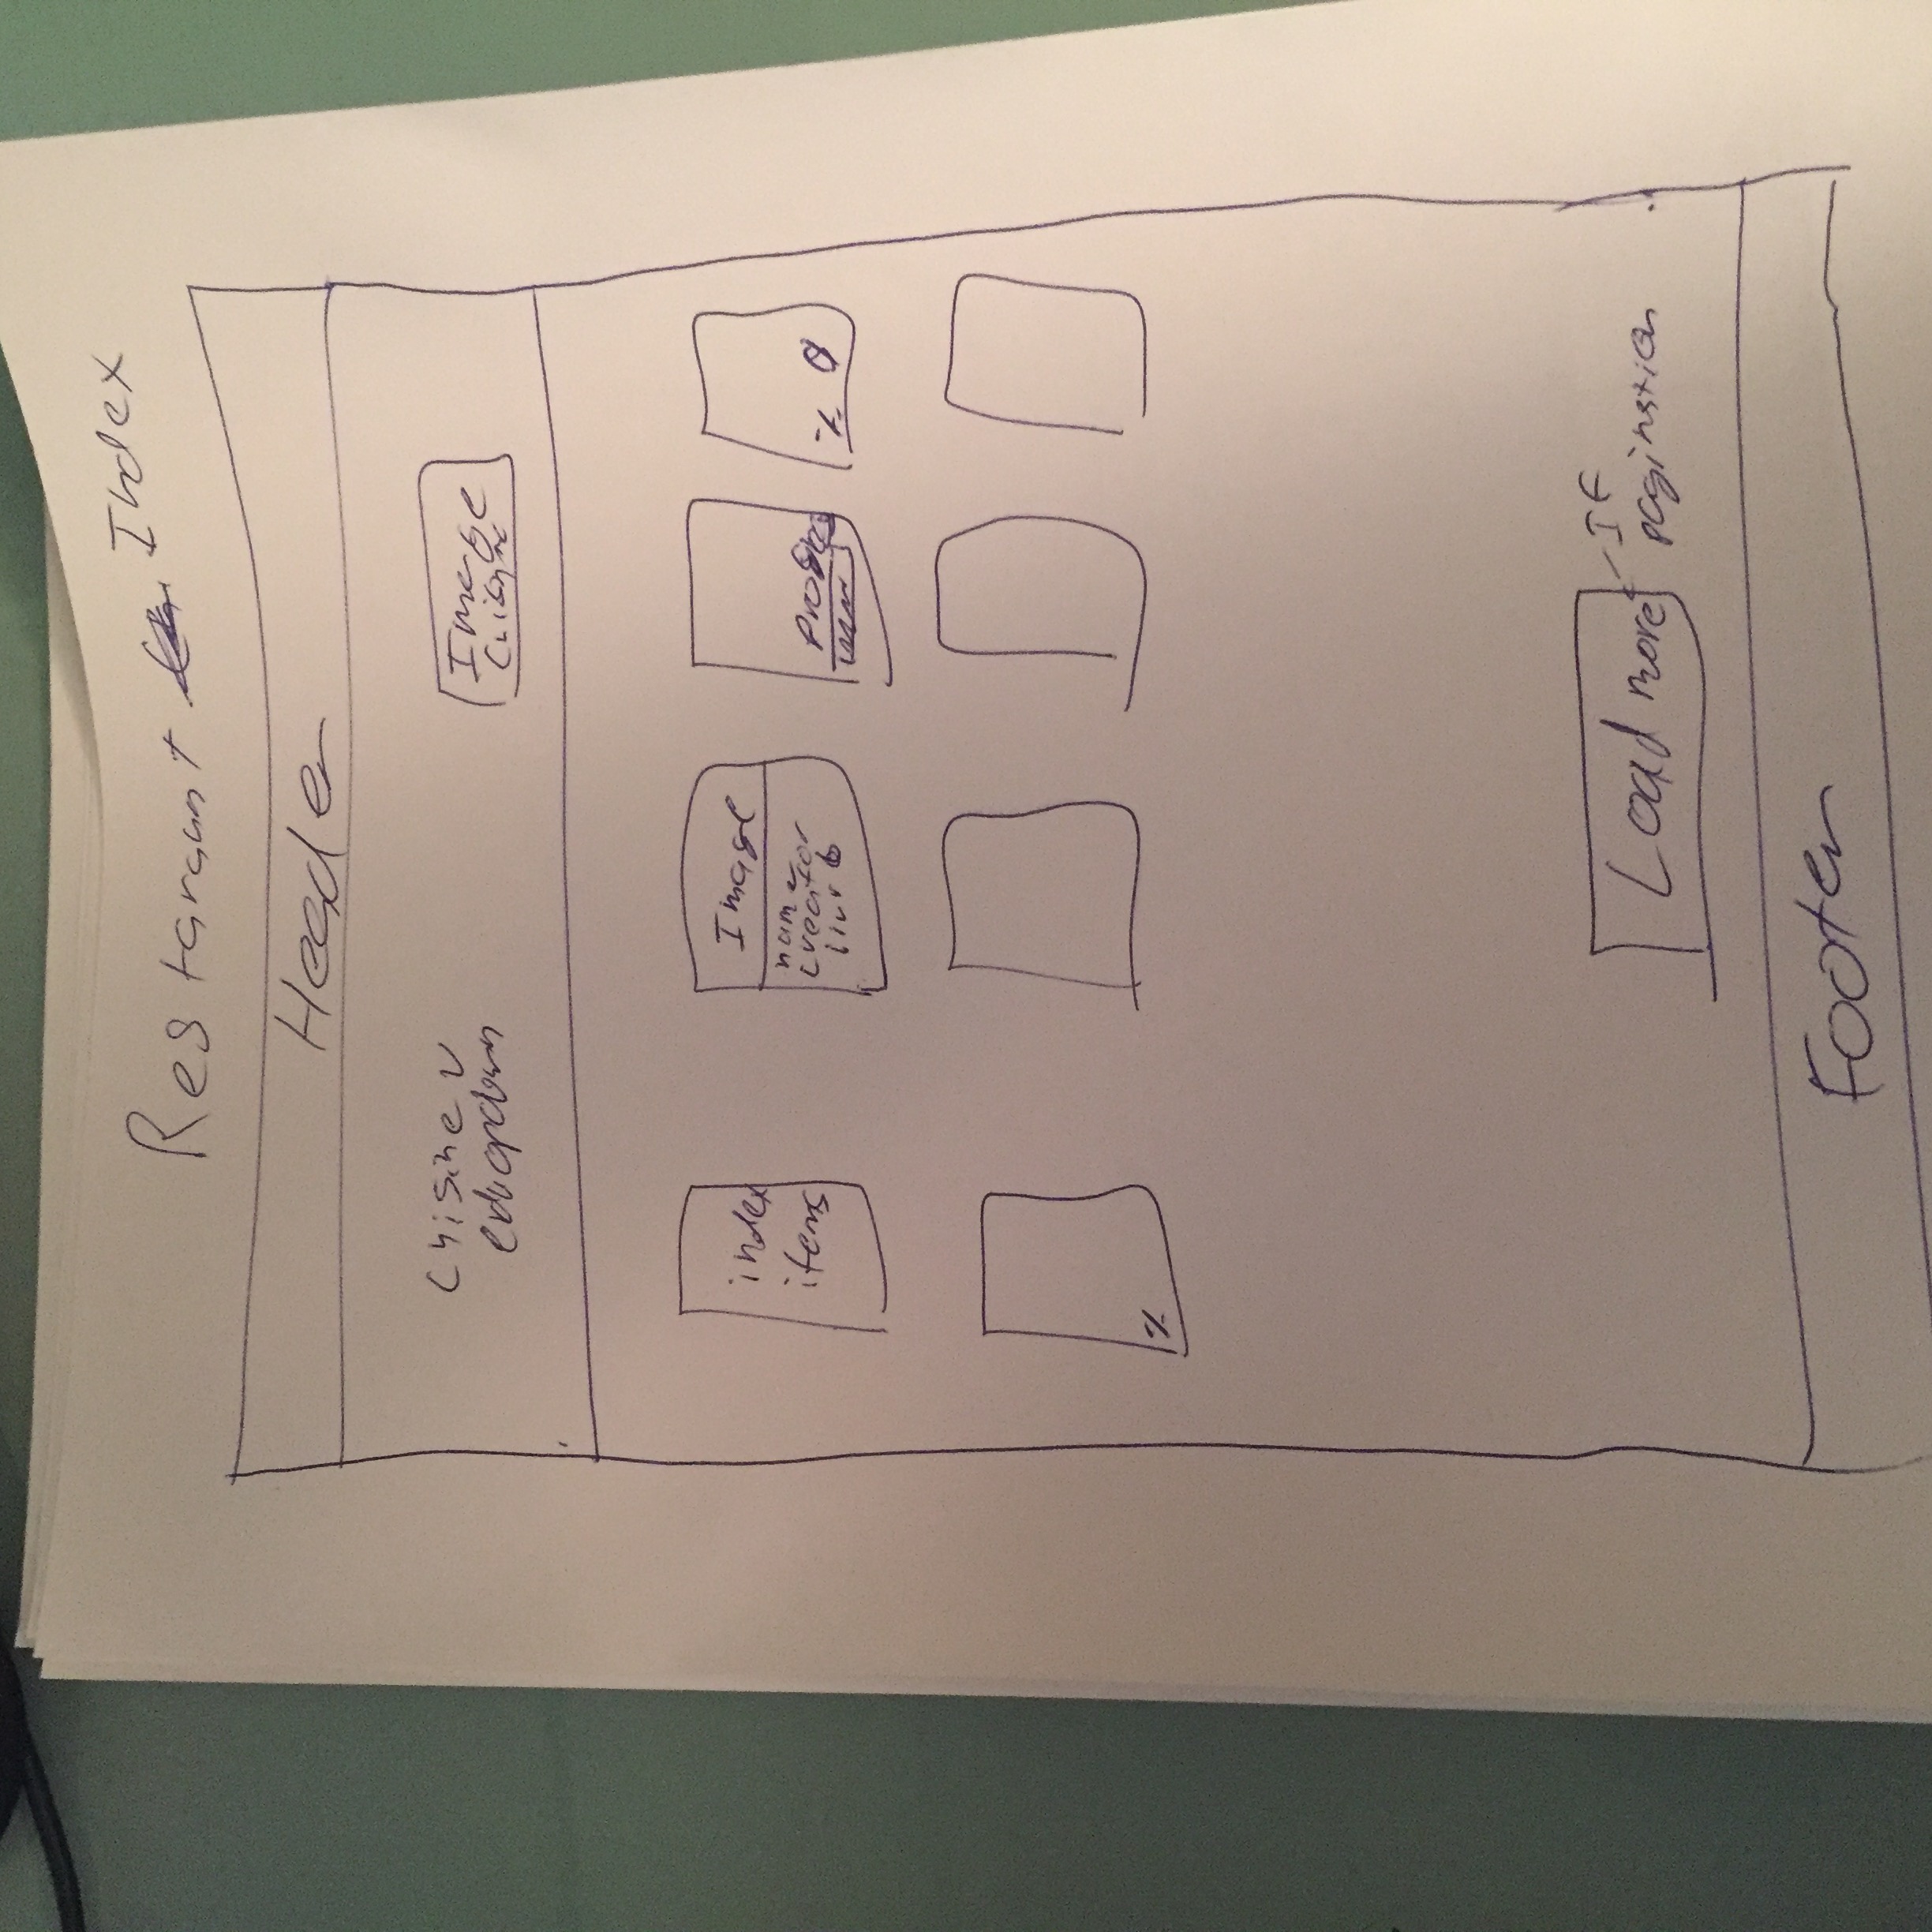 Restaraunt Index
Header
Cuisine v
dropdown
Image
Cuisine
index
items
Image
name
creator
blurb
progress
% $
%
Load more
If
pagination
Footer